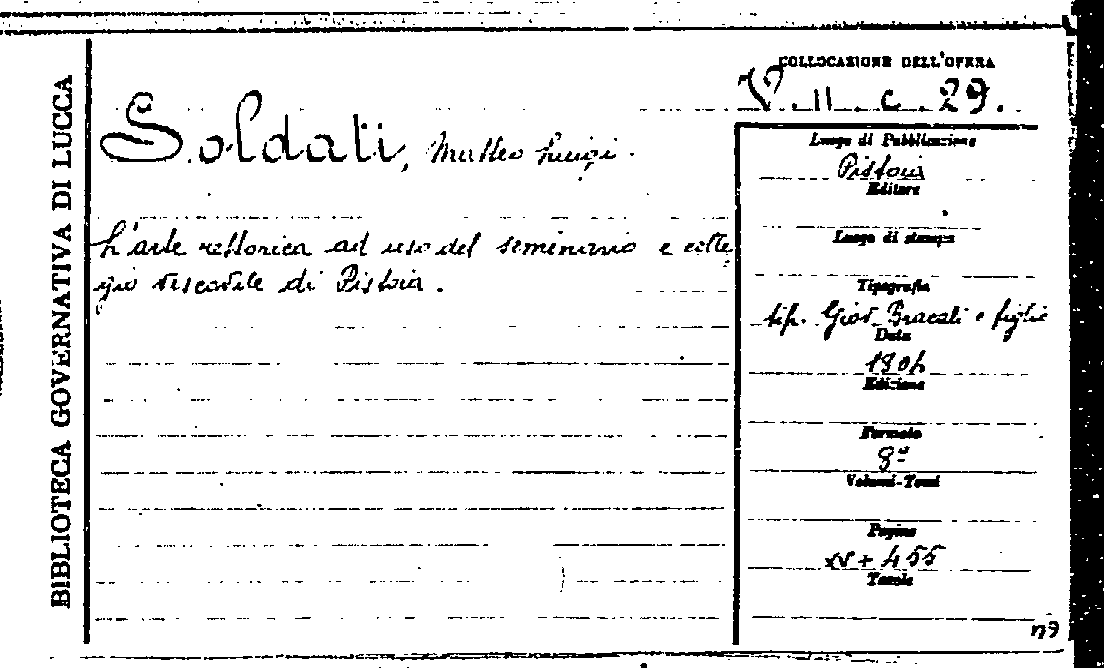 BIBLIOTECA GOVERNATIVA DI LUCCA
COLLOCAZIONE DELL'OPERA
V. II. c. 29.
Soldati, Matteo Luigi.
L'arte rettorica ad uso del seminario e colle
gio vescovile di Pistoia.
Luogo di Pubblicazione
Pistoia
Editore
Luogo di stampa
Tipografia
tip. Giov. Bracali e figlie
Data
Edizione
Formato
8º
Volumi-Tomi
Pagine
+ 455
Tavole